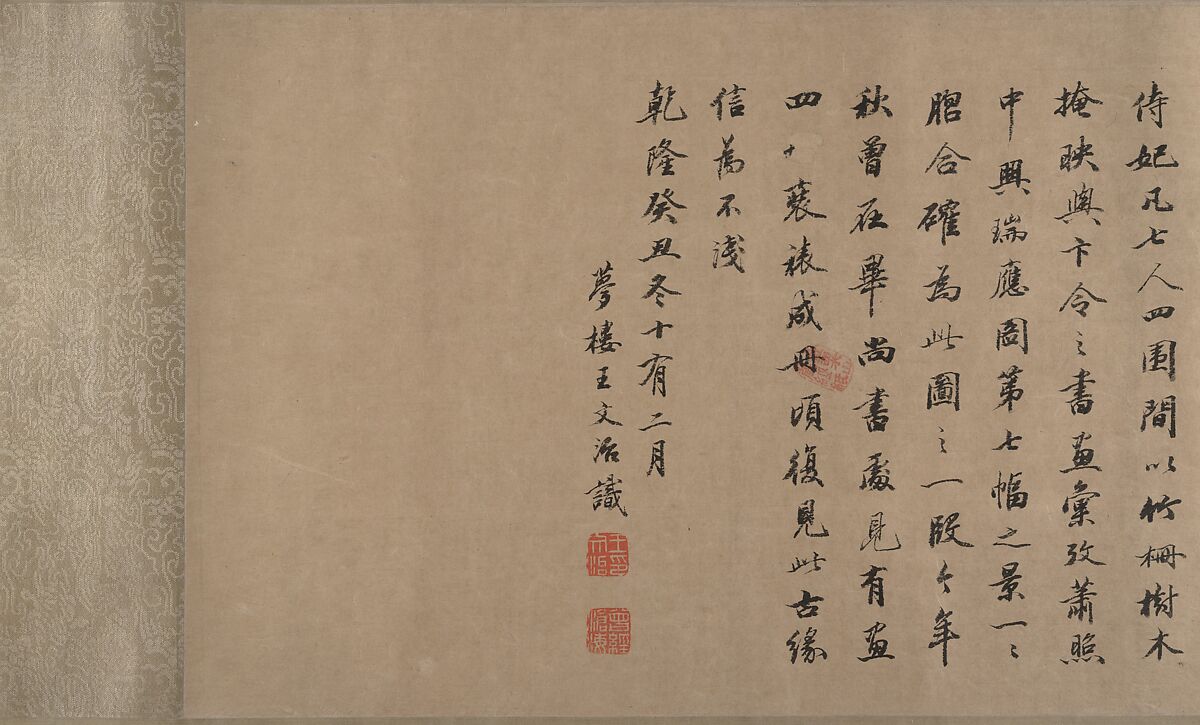 侍妃凡七人四圍間以竹柵樹木
掩映與卞令之書畫彙攷蕭照
中興瑞應圖第七幅之景一〻
脗合確為此圖之一段今年
秋曾在畢尚書處見有畫
四十蓑裱成冊頃復見此古緣
信為不淺
乾隆癸丑冬十有二月
夢樓王文治識
王文治印
曾經滄海